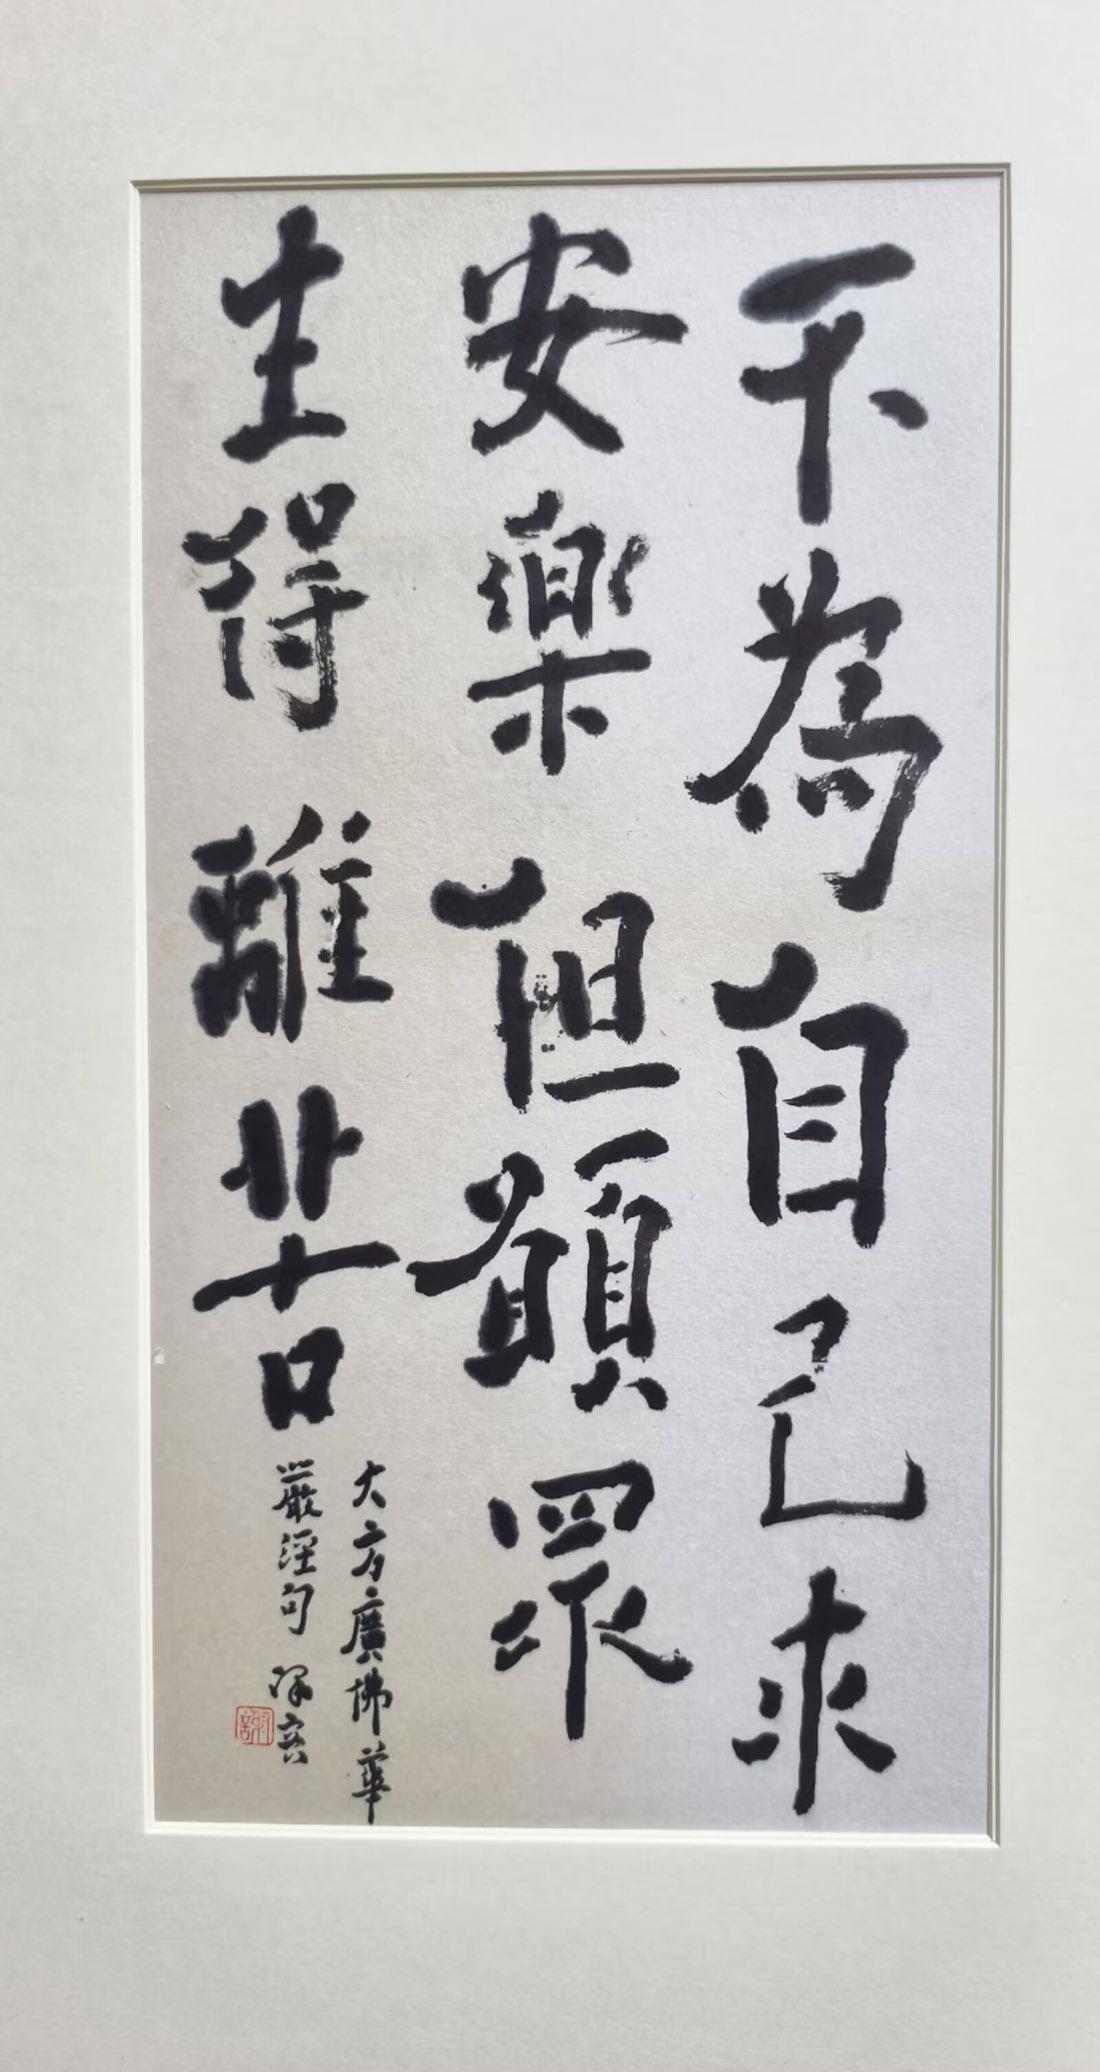 不為自己求
安樂但願眾
生得離苦
大方廣佛華
嚴經句